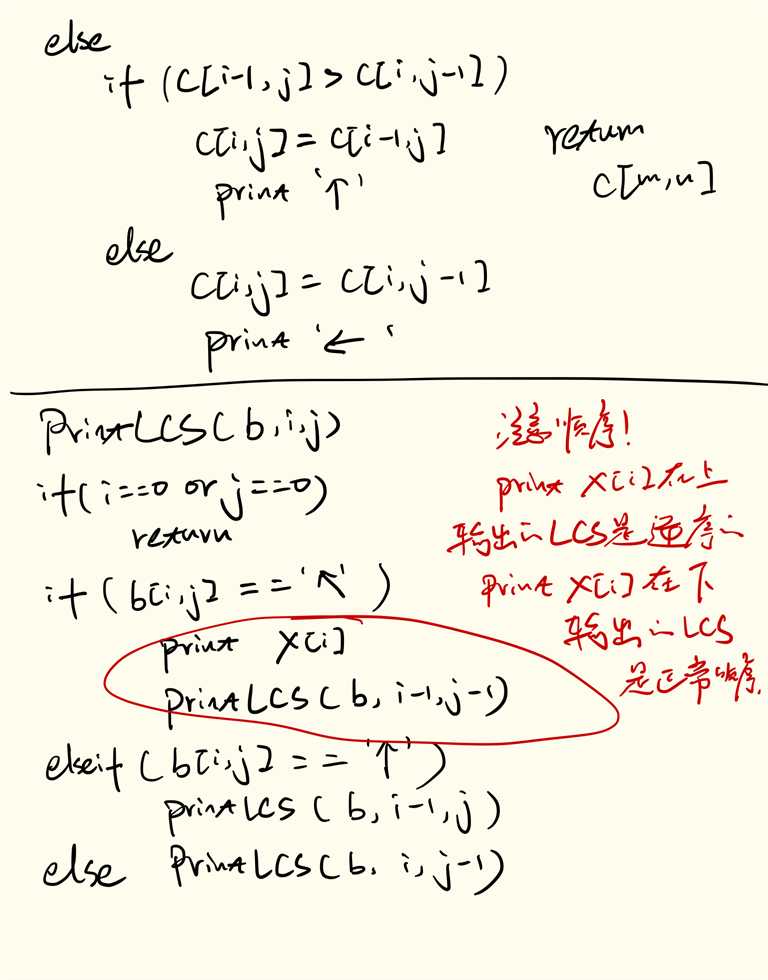 else
if (C[i-1,j] > C[i,j-1])
C[i,j] = C[i-1,j]
print '↑'
return
C[m,n]
else
C[i,j] = C[i,j-1]
print '←'
PrintLCS(b,i,j)
if(i==0 or j==0)
return
if (b[i,j] == '↖')
print X[i]
printLCS(b, i-1,j-1)
elseif (b[i,j] == '↑')
printLCS (b, i-1,j)
else PrintLCS(b, i,j-1)
注意顺序!
print X[i]在上
输出的LCS是逆序的
print X[i]在下
输出的LCS
是正常顺序.